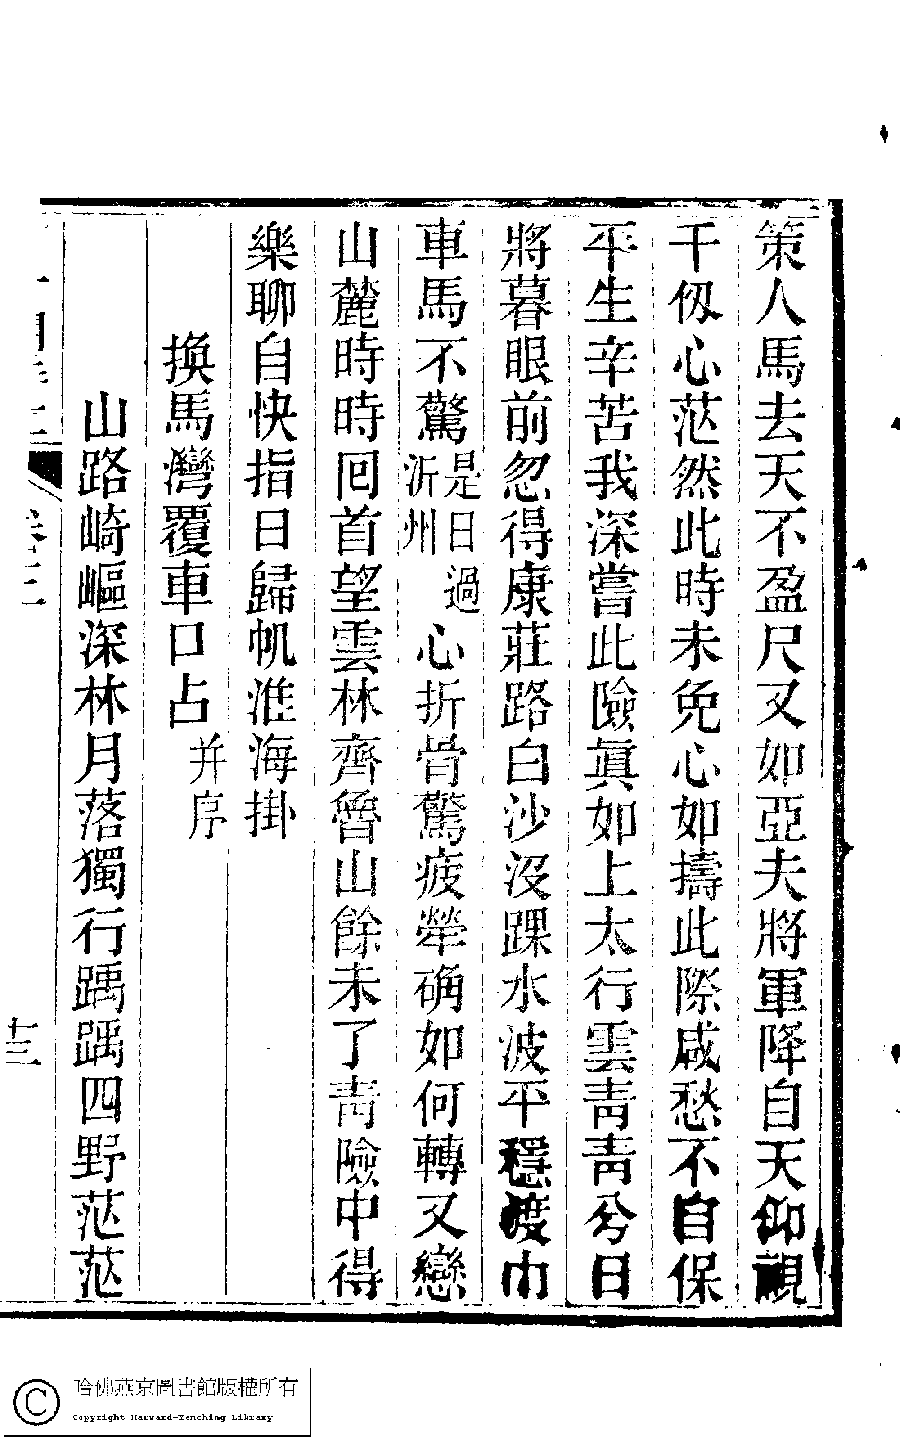 策人馬去天不盈尺又如亞夫將軍降自天仰視
千仭心茫然此時未免心如擣此際戚愁不自保
平生辛苦我深嘗此險眞如上太行雲靑靑兮日
將暮眼前忽得康莊路白沙沒踝水波平穩渡巾
車馬不驚是日過沂州心折骨驚疲犖确如何轉又戀
山麓時時回首望雲林齊魯山餘未了靑險中得
樂聊自快指日歸帆淮海掛
換馬灣覆車口占并序
山路崎嶇深林月落獨行踽踽四野茫茫
卷三
十三
哈佛燕京圖書館版權所有
Copyright Harvard-Yenching Library